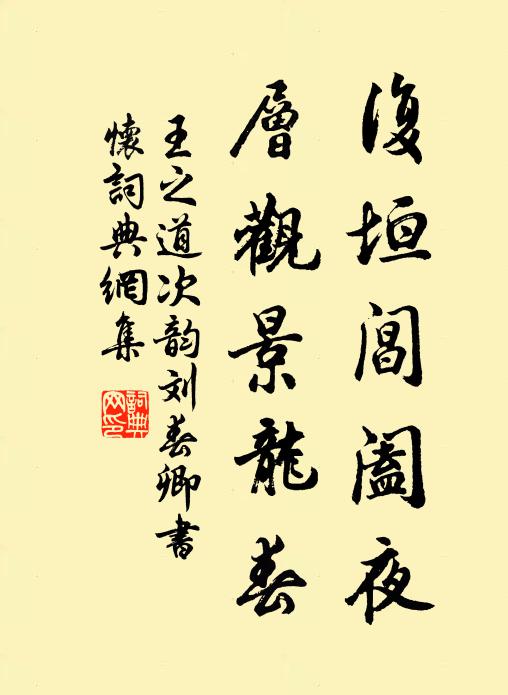 復垣閶闔夜
層觀景龍春
王之道次韵刘春卿書
懷詞典網集
詞典網印